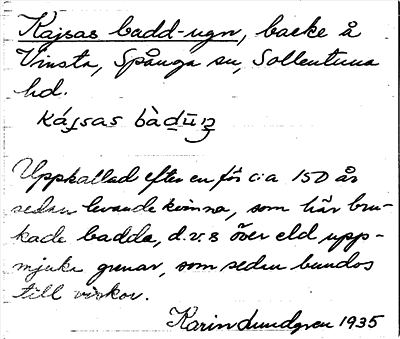 Kajsas badd-ugn, backe å
Vinsta, Spånga sn, Sollentuna
hd.
kájsas bàdu̱ŋ
Uppkallad efter en för c:a 150 år
sedan levande kvinna, som här bru-
kade badda, d.v.s över eld upp-
mjuka grenar, som sedan bundos
till viskor.
Karin Lundgren 1935